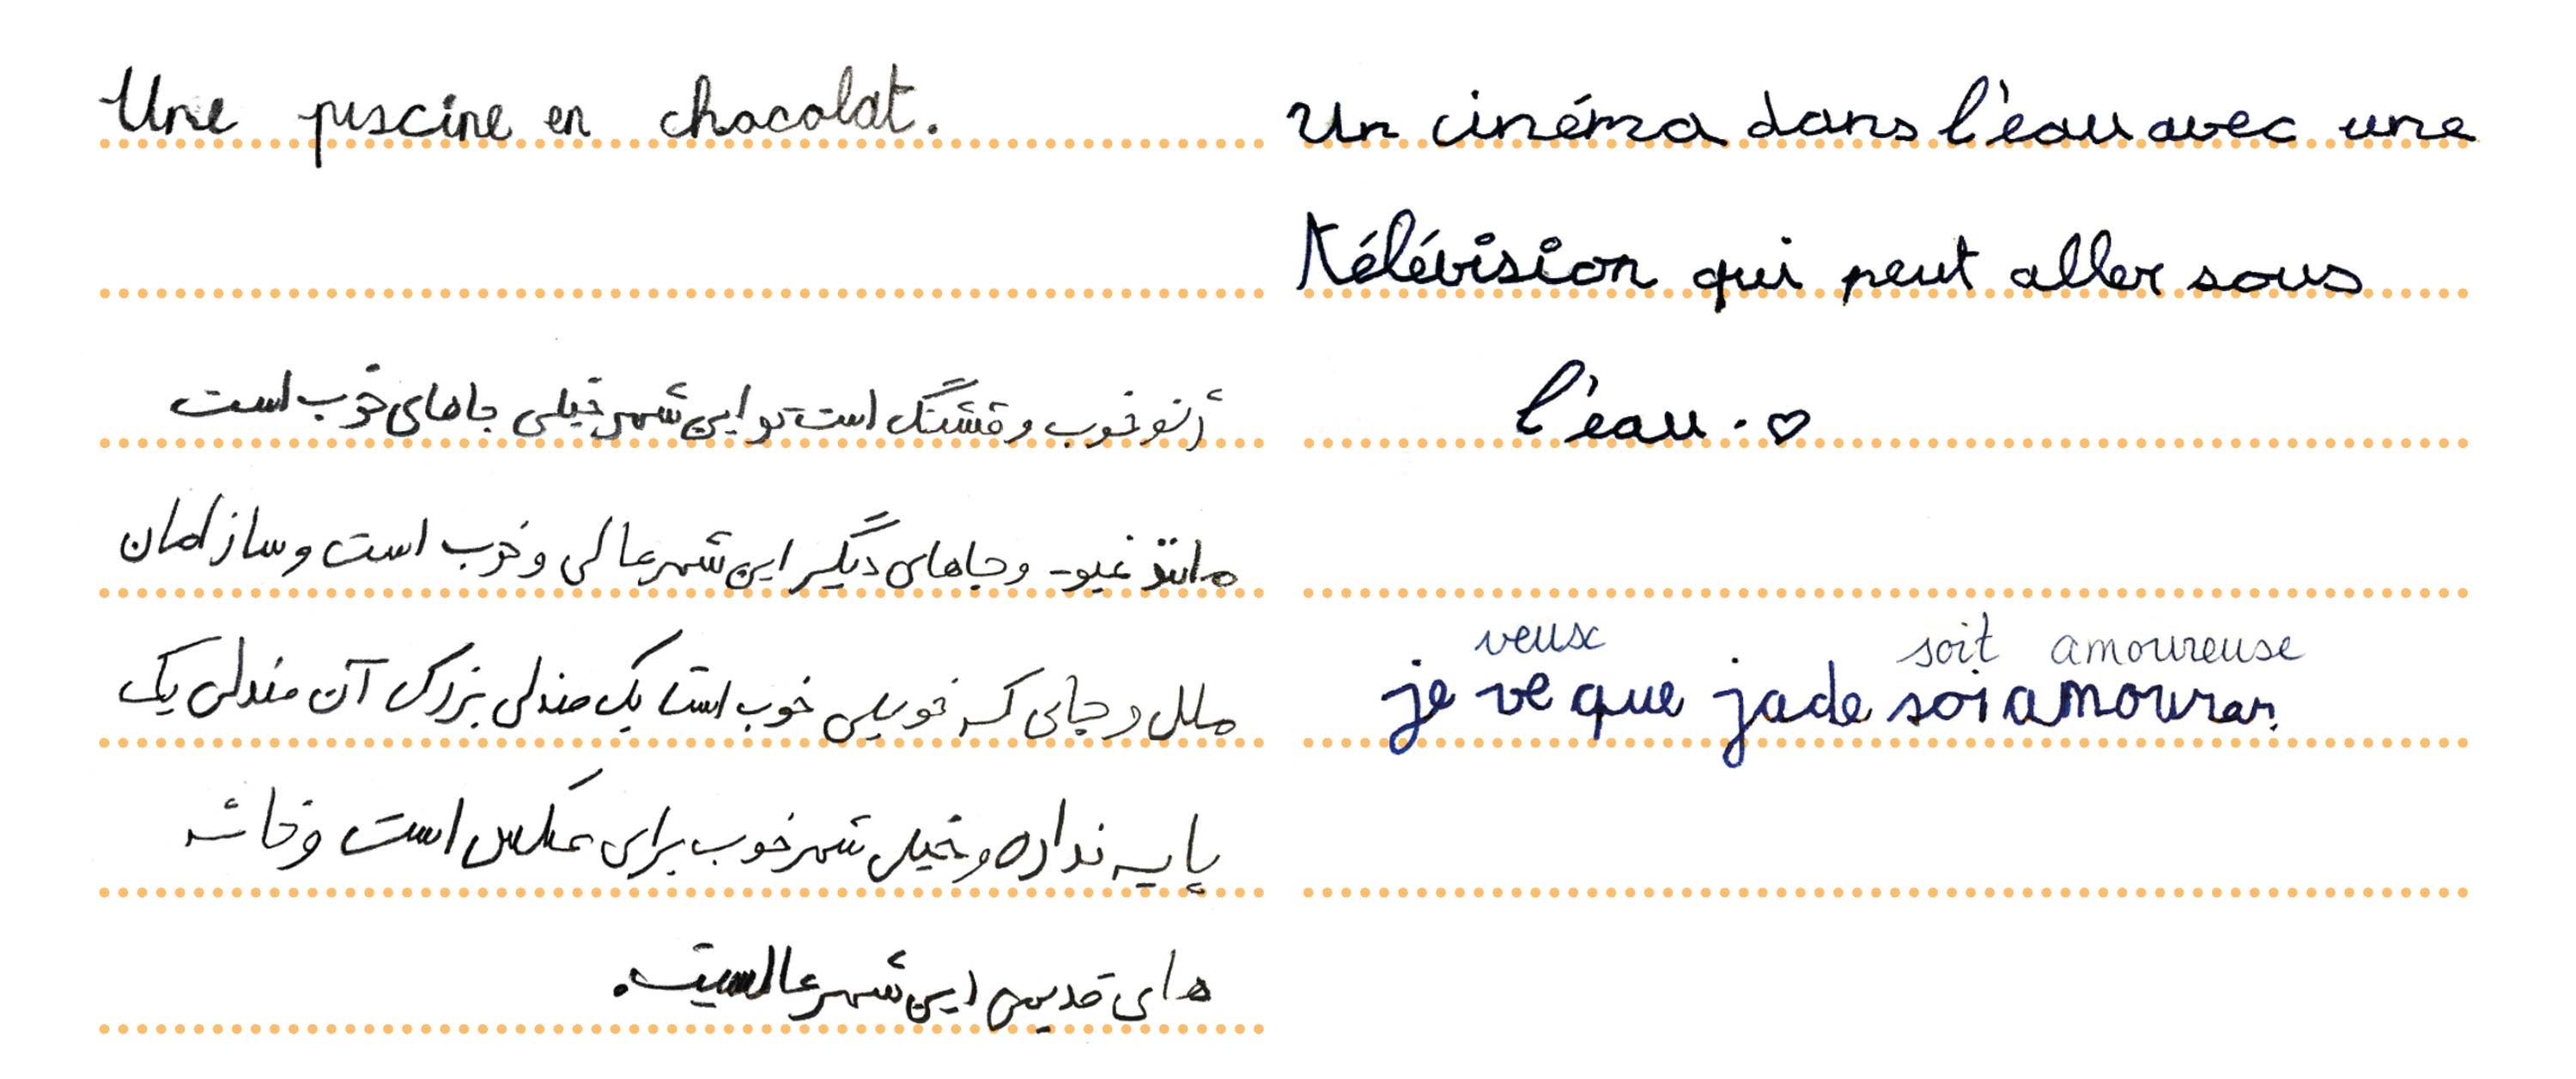 Une piscine en chocolat.
ژنو خوب و قشنگ است تو این شهر خیلی جاهای خوب است
مانند غیو- و جاهای دیگر این شهر عالی و خوب است و سازلمان
ملل و جای که خویلی خوب است یک صندلی بزرگ آن صندلی یک
پایه نداره و خیلی شهر خوب برای عکس است و خانه
های قدیمی این شهر عالسیت.
Un cinéma dans l'eau avec une
télévision qui peut aller sous
l'eau. ♡
veux soit amoureuse
je ve que jade soi amouran.